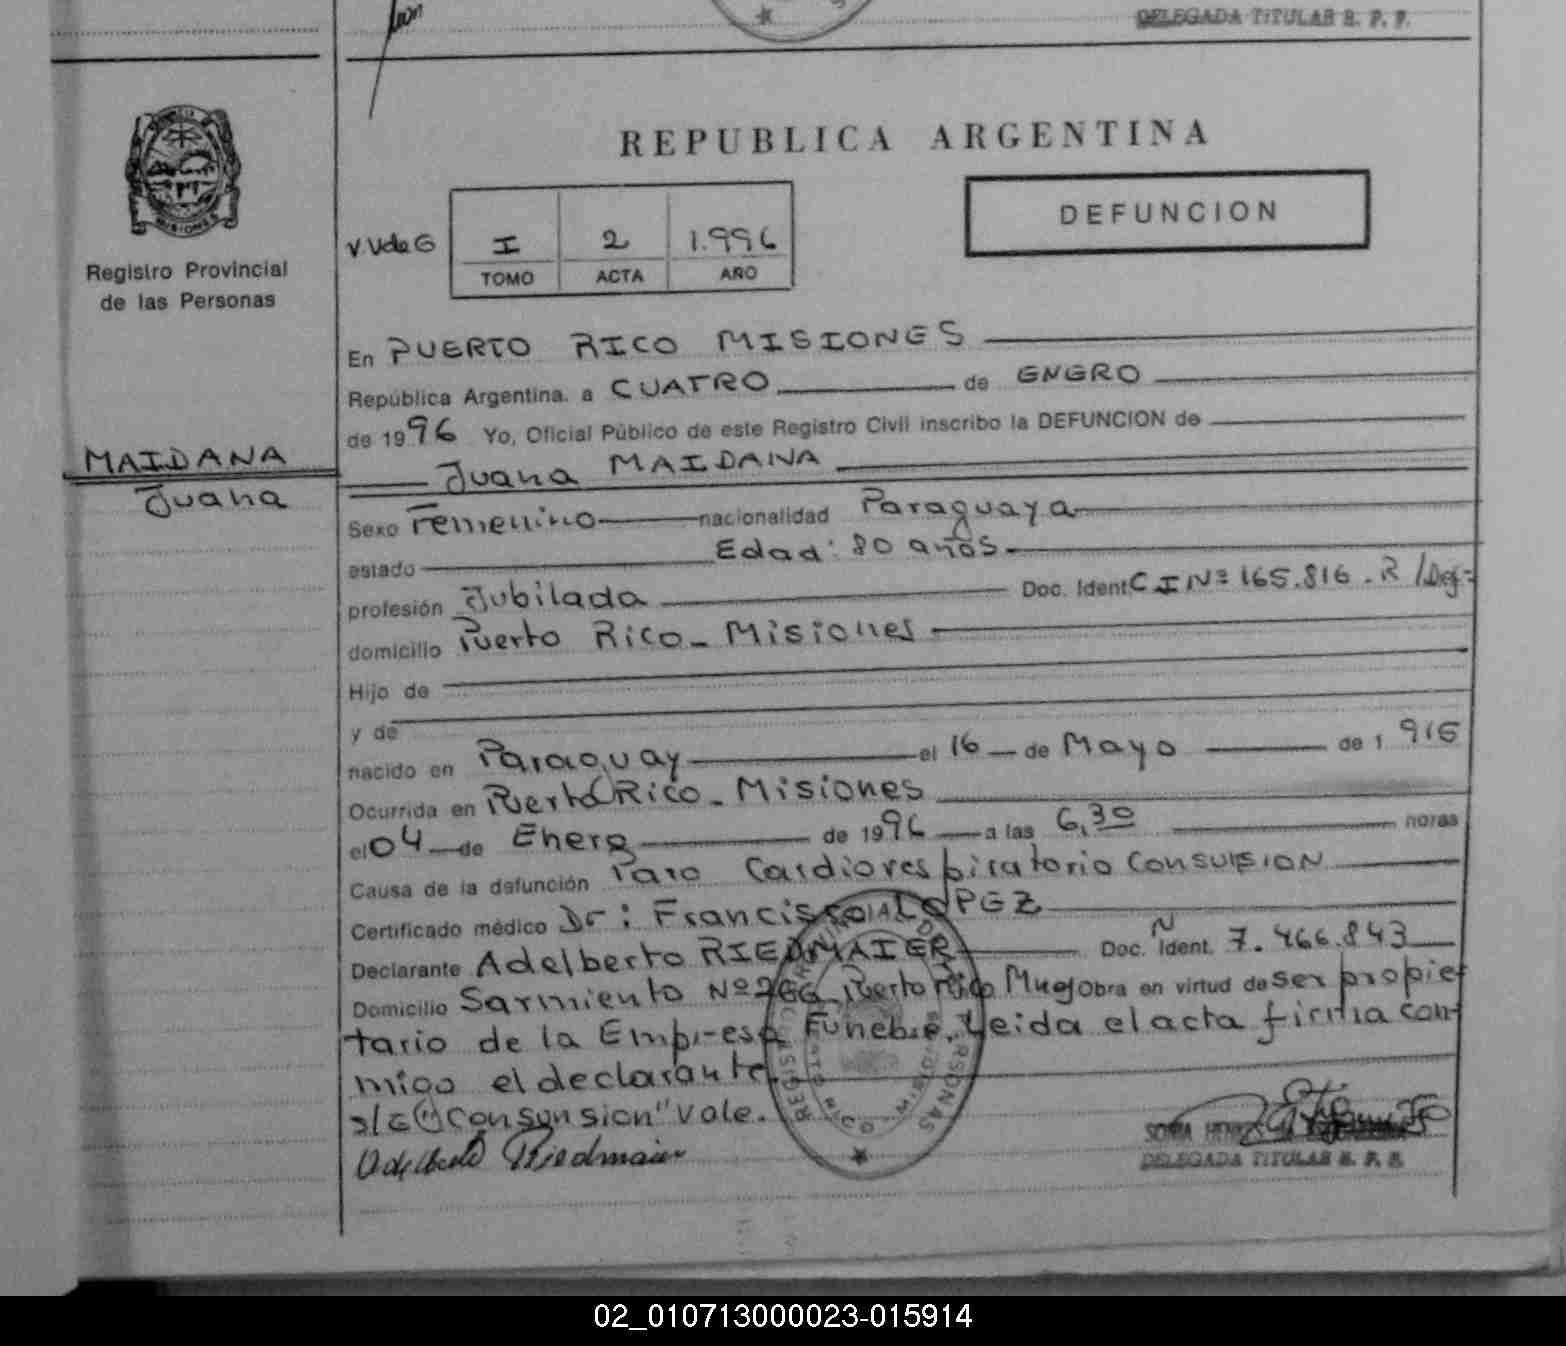 DELEGADA TITULAR R. P. P.
MISIONES
Registro Provincial
de las Personas
REPUBLICA ARGENTINA
DEFUNCION
V.VdeG
I 2 1.996
TOMO ACTA AÑO
MAIDANA
Juana
En PUERTO RICO MISIONES
República Argentina. a CUATRO de ENERO
de 1996 Yo, Oficial Público de este Registro Civil inscribo la DEFUNCION de
Juana MAIDANA
Sexo Femenino nacionalidad Paraguaya
estado Edad: 80 años
profesión Jubilada Doc. Ident C I Nº 165.816.R
domicilio Puerto Rico - Misiones
Hijo de
y de
nacido en Paraguay el 16 de Mayo de 1 915
Ocurrida en Puerto Rico - Misiones
el 04 de Enero de 1996 a las 6,30 horas
Causa de la defunción Paro Cardiorespiratorio
Certificado médico Dr: Francisco LOPEZ
Declarante Adelberto RIEDMAIER Doc. Ident. 7.466.843
Domicilio Sarmiento Nº 266 Puerto Rico Obra en virtud de ser propie-
tario de la Empresa Funebre. Leida el acta firma con-
migo el declarante
Vale.
Adelberto Riedmaier
DELEGADA TITULAR R. P. P.
02_010713000023-015914